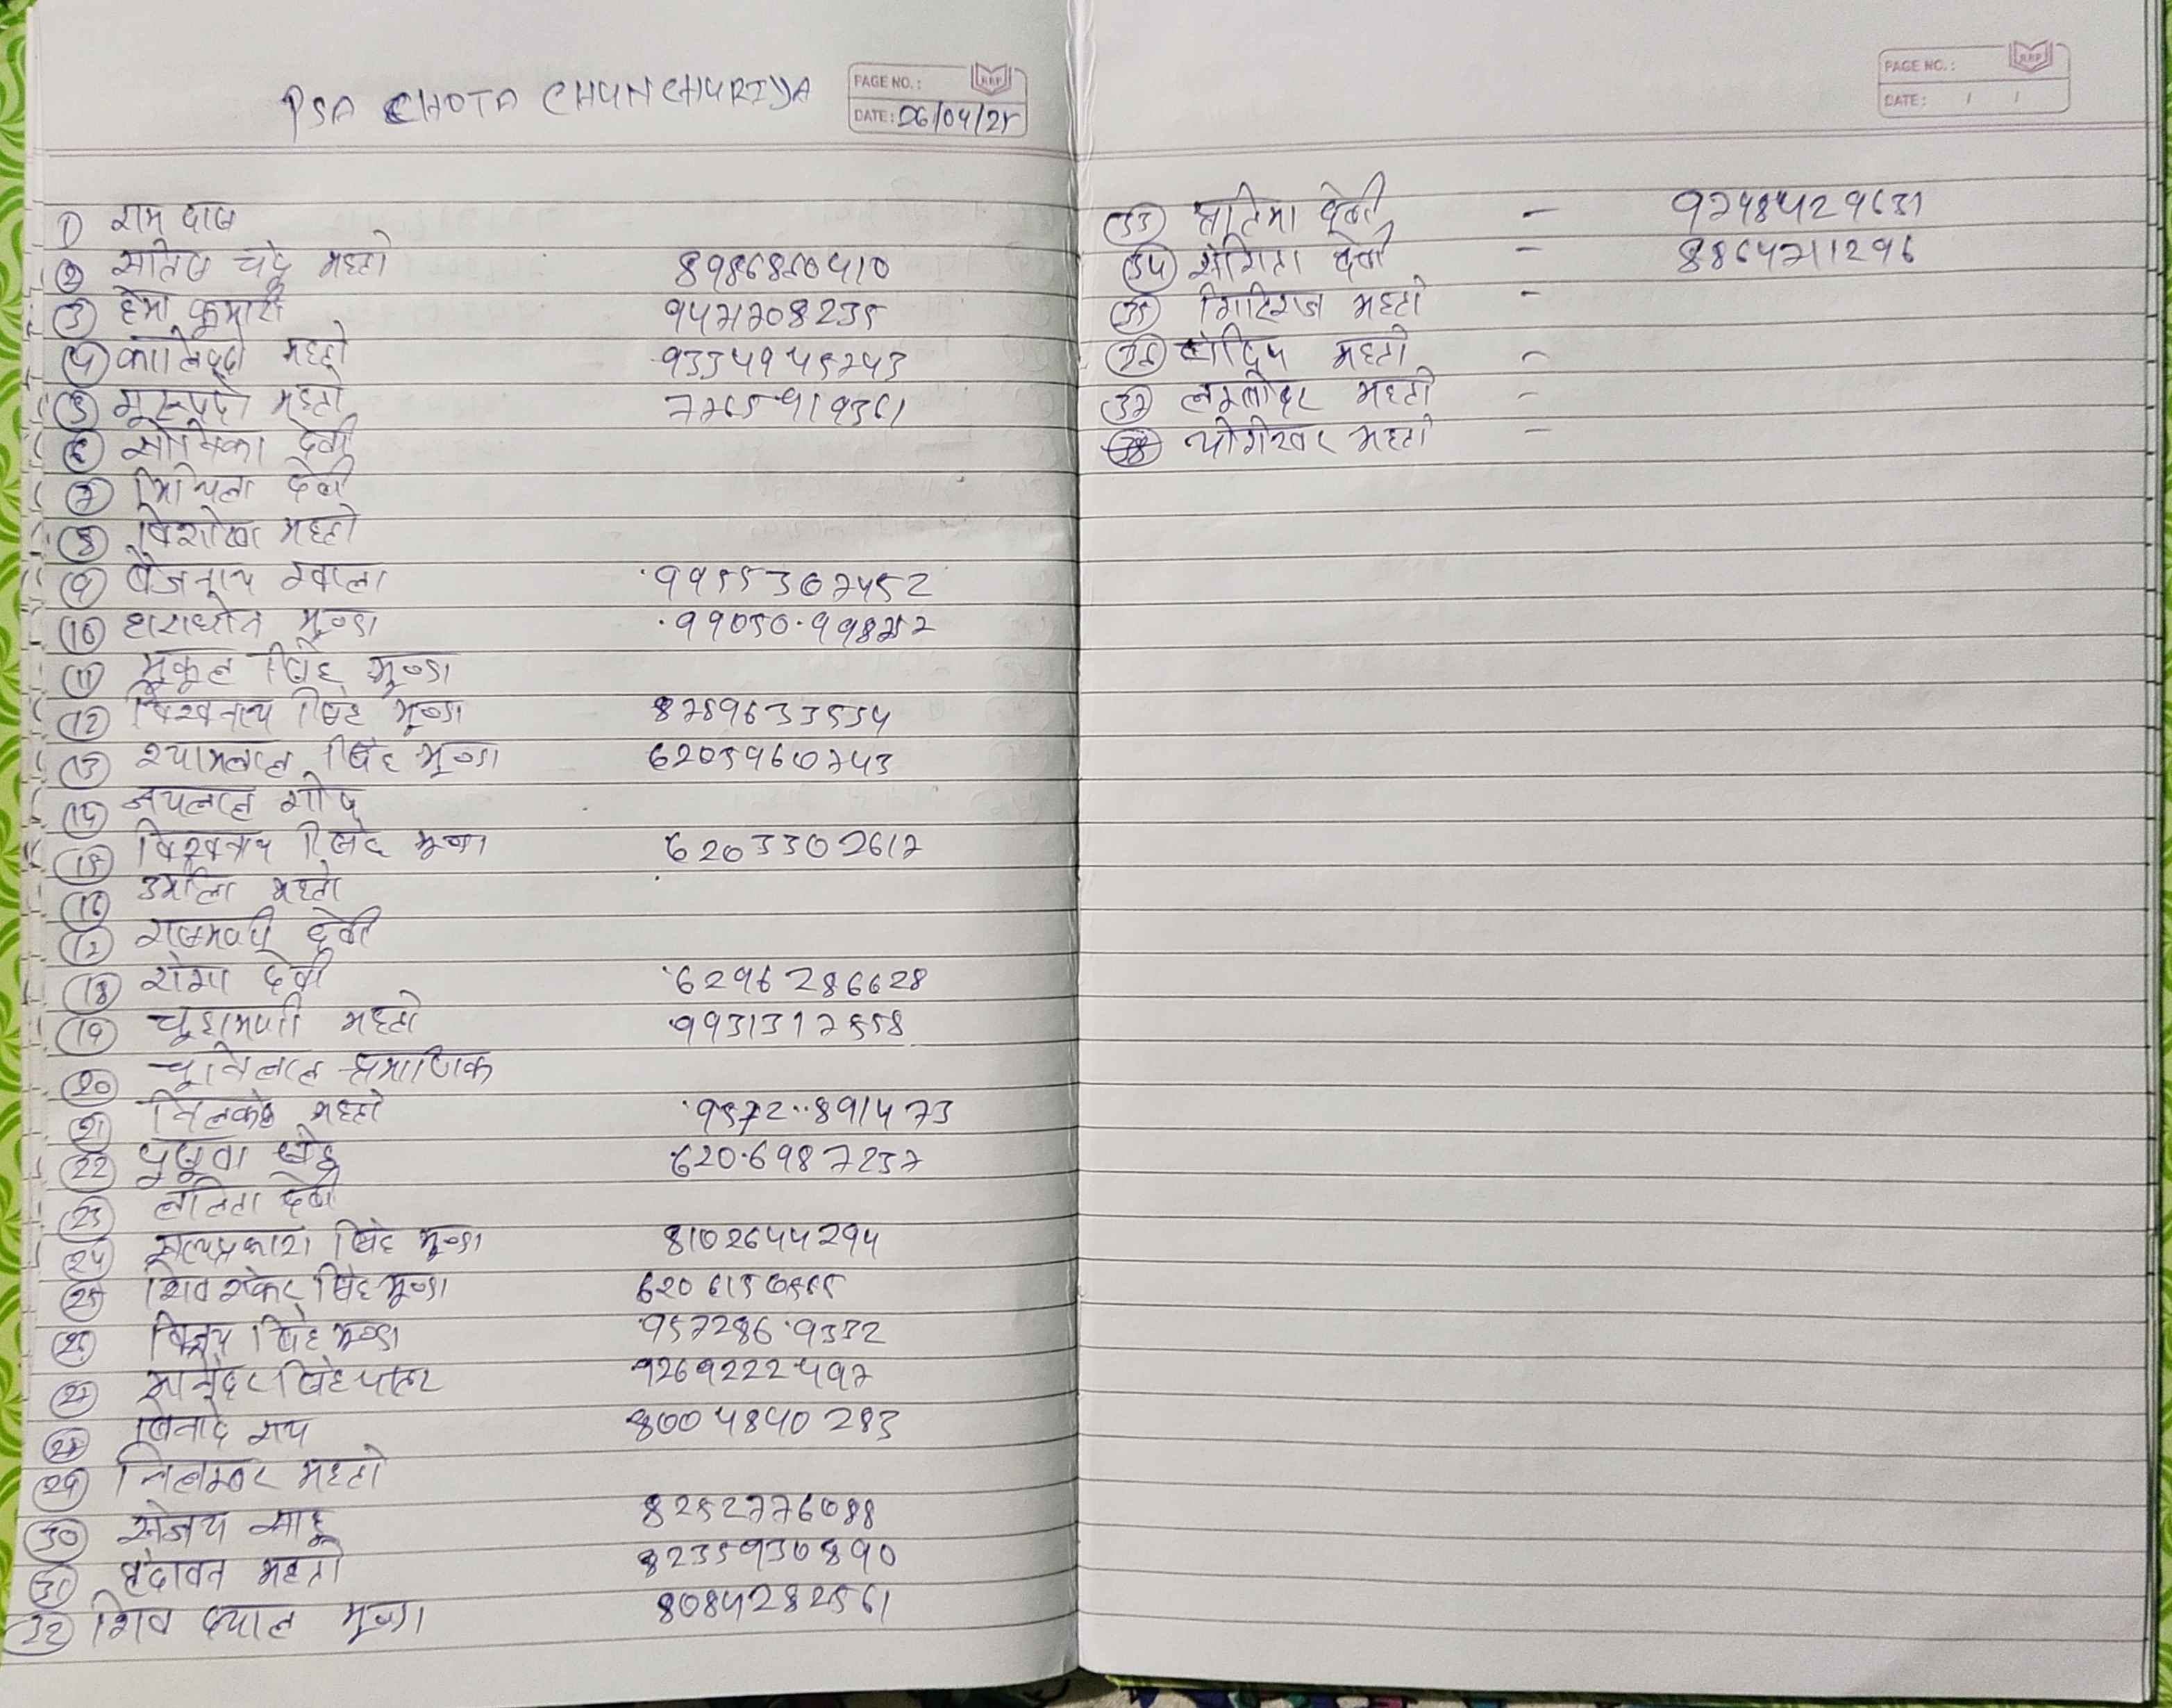 PSA CHOTA CHUNCHURIYA
PAGE NO.:
DATE: 06/04/25
① राम दास
② सतिश चंद्र महतो 8986860410
③ हेमा कुमारी 9471708235
④ कालिपदो महतो 9334945743
⑤ गुरूपदो महतो 7765919361
⑥ देवी
⑦ मिथिला देवी
⑧ विशाखा महतो
⑨ बैजनाथ ग्वाला 9955307452
⑩ हाराधोन मुण्डा 99050998
⑪ मुकुल सिंह मुण्डा
⑫ विश्वनाथ सिंह मुण्डा 8789633534
⑬ श्यामलाल सिंह मुण्डा 6205960743
⑭ जयलाल गोप
⑮ विश्वनाथ सिंह मुण्डा 6203302617
⑯ उर्मिला महतो
⑰ रासमणी देवी
⑱ देवी 6296286628
⑲ चुड़ामणी महतो 9931317558
⑳ चुनिलाल प्रमाणिक
㉑ निलकंठ महतो 9572891473
㉒ 6206987237
㉓ ललिता देवी
㉔ सत्यप्रकाश सिंह मुण्डा 8102644294
㉕ शिव शंकर सिंह मुण्डा 620615
㉖ विजय सिंह मुण्डा 9572869332
㉗ सिंह पातर 9269222497
㉘ विनोद राय 8004840283
㉙ निलाम्बर महतो
㉚ संजय साहू 8252776088
㉛ वृंदावन महतो 8235930890
㉜ शिव दयाल मुण्डा 8084282561
PAGE NO.:
DATE: / /
㉝ प्रतिमा देवी - 9748429631
㉞ संगिता देवी - 8864711296
㉟ गिरिराज महतो -
㊱ महतो -
㊲ लम्बोदर महतो -
㊳ योगेश्वर महतो -